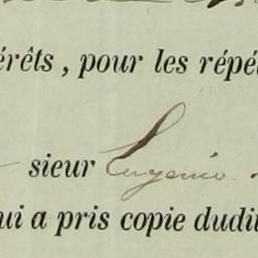 érêts, pour les répé
sieur Eugenio
ui a pris copie dudit